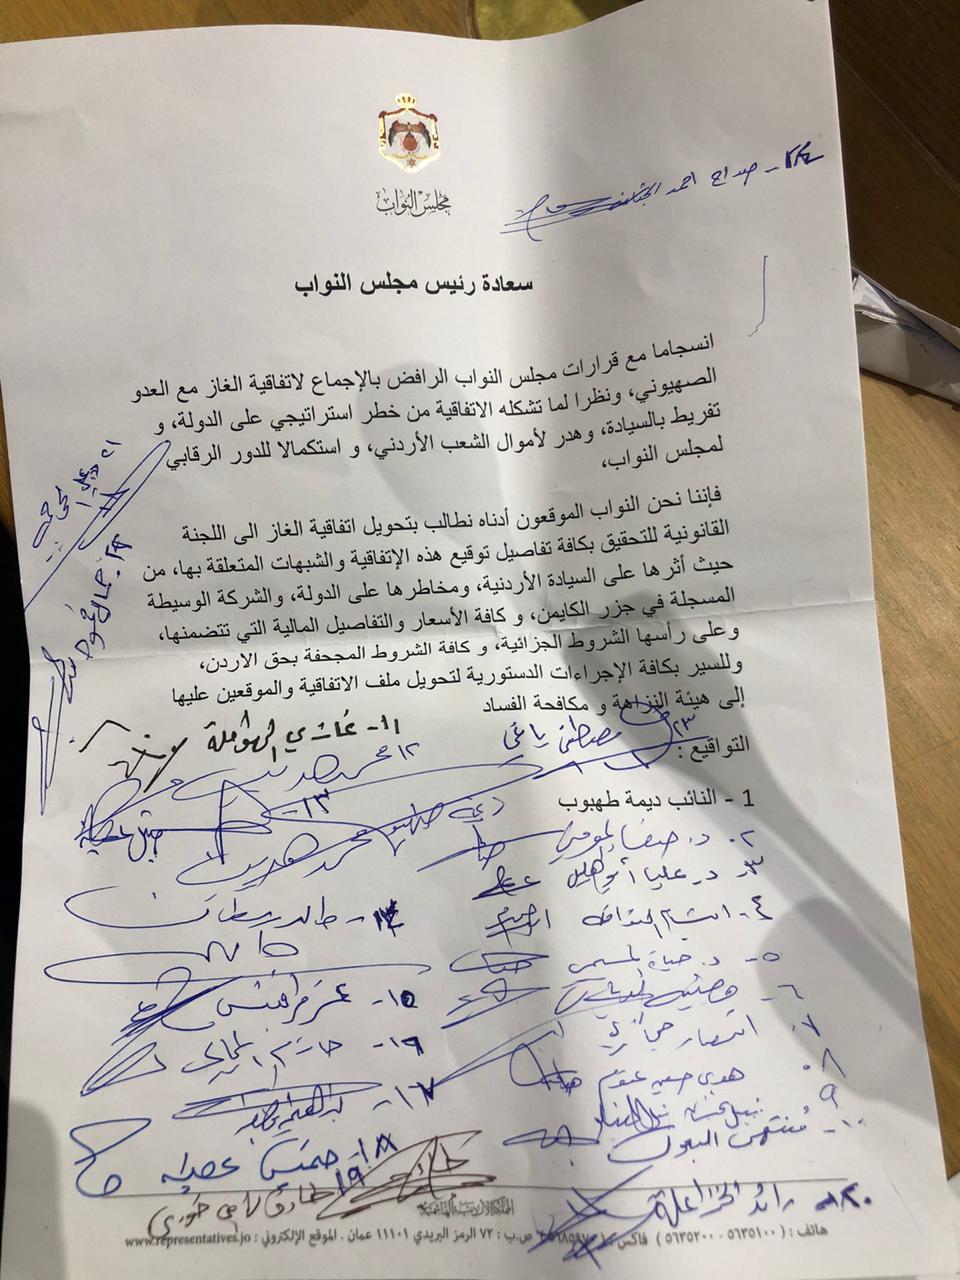 مجلس النواب
٢٤ - صداح احمد
سعادة رئيس مجلس النواب
انسجاما مع قرارات مجلس النواب الرافض بالإجماع لاتفاقية الغاز مع العدو
الصهيوني، ونظرا لما تشكله الاتفاقية من خطر استراتيجي على الدولة، و
تفريط بالسيادة، وهدر لأموال الشعب الأردني، و استكمالا للدور الرقابي
لمجلس النواب،
فإننا نحن النواب الموقعون أدناه نطالب بتحويل اتفاقية الغاز الى اللجنة
القانونية للتحقيق بكافة تفاصيل توقيع هذه الإتفاقية والشبهات المتعلقة بها، من
حيث أثرها على السيادة الأردنية، ومخاطرها على الدولة، والشركة الوسيطة
المسجلة في جزر الكايمن، و كافة الأسعار والتفاصيل المالية التي تتضمنها،
وعلى رأسها الشروط الجزائية، و كافة الشروط المجحفة بحق الاردن،
وللسير بكافة الإجراءات الدستورية لتحويل ملف الاتفاقية والموقعين عليها
إلى هيئة النزاهة و مكافحة الفساد
التواقيع :
٢٣ مصطفى ياغي
1 - النائب ديمة طهبوب
٢ - د. صفاء المومني
٣ - د. علياء أبو هليل
٤ - ابتسام النوافله
٥ - د. حياة المسيمي
٦ -
٧ - انتصار حجازي
٨ - هدى حسين عتوم
٩ - نبيل
١٠ - منتهى البعول
١١ - غازي الهواملة
١٢ محمد هديب
١٣ -
١٤ - خالد رمضان
١٥ -
١٦ - حازم المجالي
١٧ -
١٨ - خميس عطيه
١٩ طارق سامي خوري
٢٠ - رائد الخزاعلة
٢١
٢٢ -
المملكة الأردنية الهاشمية
هاتف : ( ٥٦٣٥١٠٠ - ٥٦٣٥٢٠٠ ) فاكس : ( ٥٦٨٥٩٧٠ ) ص.ب : ٧٢ الرمز البريدي ١١١٠١ عمان . الموقع الإلكتروني : www.representatives.jo